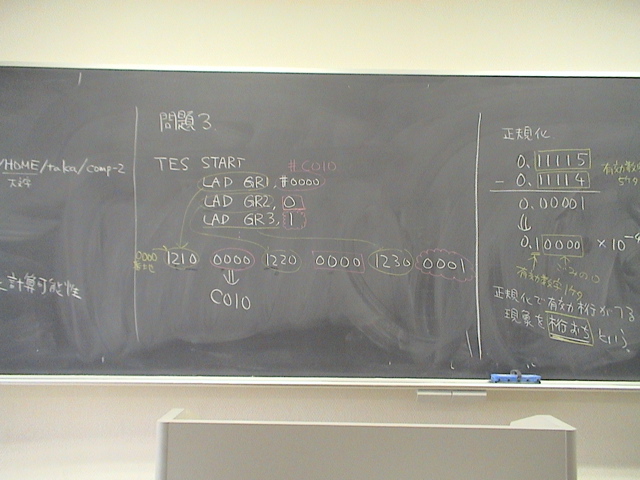 /HOME/taka/comp-2
計算可能性
問題3.
TES START
#C010
LAD GR1, #0000
LAD GR2, 0
LAD GR3, 1
0000
1210 0000 1220 0000 1230 0001
⇓
C010
正規化
0.11115
- 0.11114
0.00001
⇓
0.10000 × 10-4
有効数
5ケタ
有効数字1ケタ
正規化で有効桁が下る
現象を桁おちという